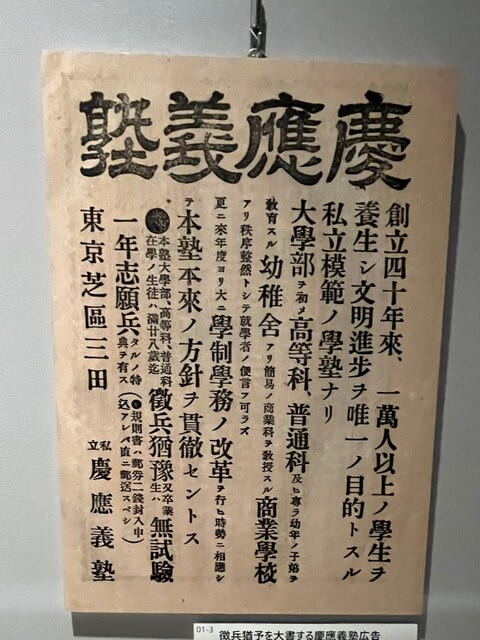 慶應義塾
創立四十年來、一萬人以上ノ學生ヲ
養生シ文明進步ヲ唯一ノ目的トスル
私立模範ノ學塾ナリ
大學部ヲ初メ高等科、普通科及ヒ專ラ幼年ノ子弟ヲ
敎育スル幼稚舍アリ簡易ノ商業科ヲ敎授スル商業學校
アリ秩序整然トシテ就學者ノ便言フ可ラズ
更ニ來年度ヨリ大ニ學制學務ノ改革ヲ行ヒ時勢ニ相應シ
テ本塾本來ノ方針ヲ貫徹セントス
本塾大學部、高等科、普通科
在學ノ生徒ハ滿廿八歲迄徵兵猶豫又卒業生ハ無試驗
一年志願兵タルノ特典ヲ有ス(規則書ハ郵券二錢封入申込アレバ直ニ郵送スベシ)
東京芝區三田 私立慶應義塾
01-3 徴兵猶予を大書する慶應義塾広告